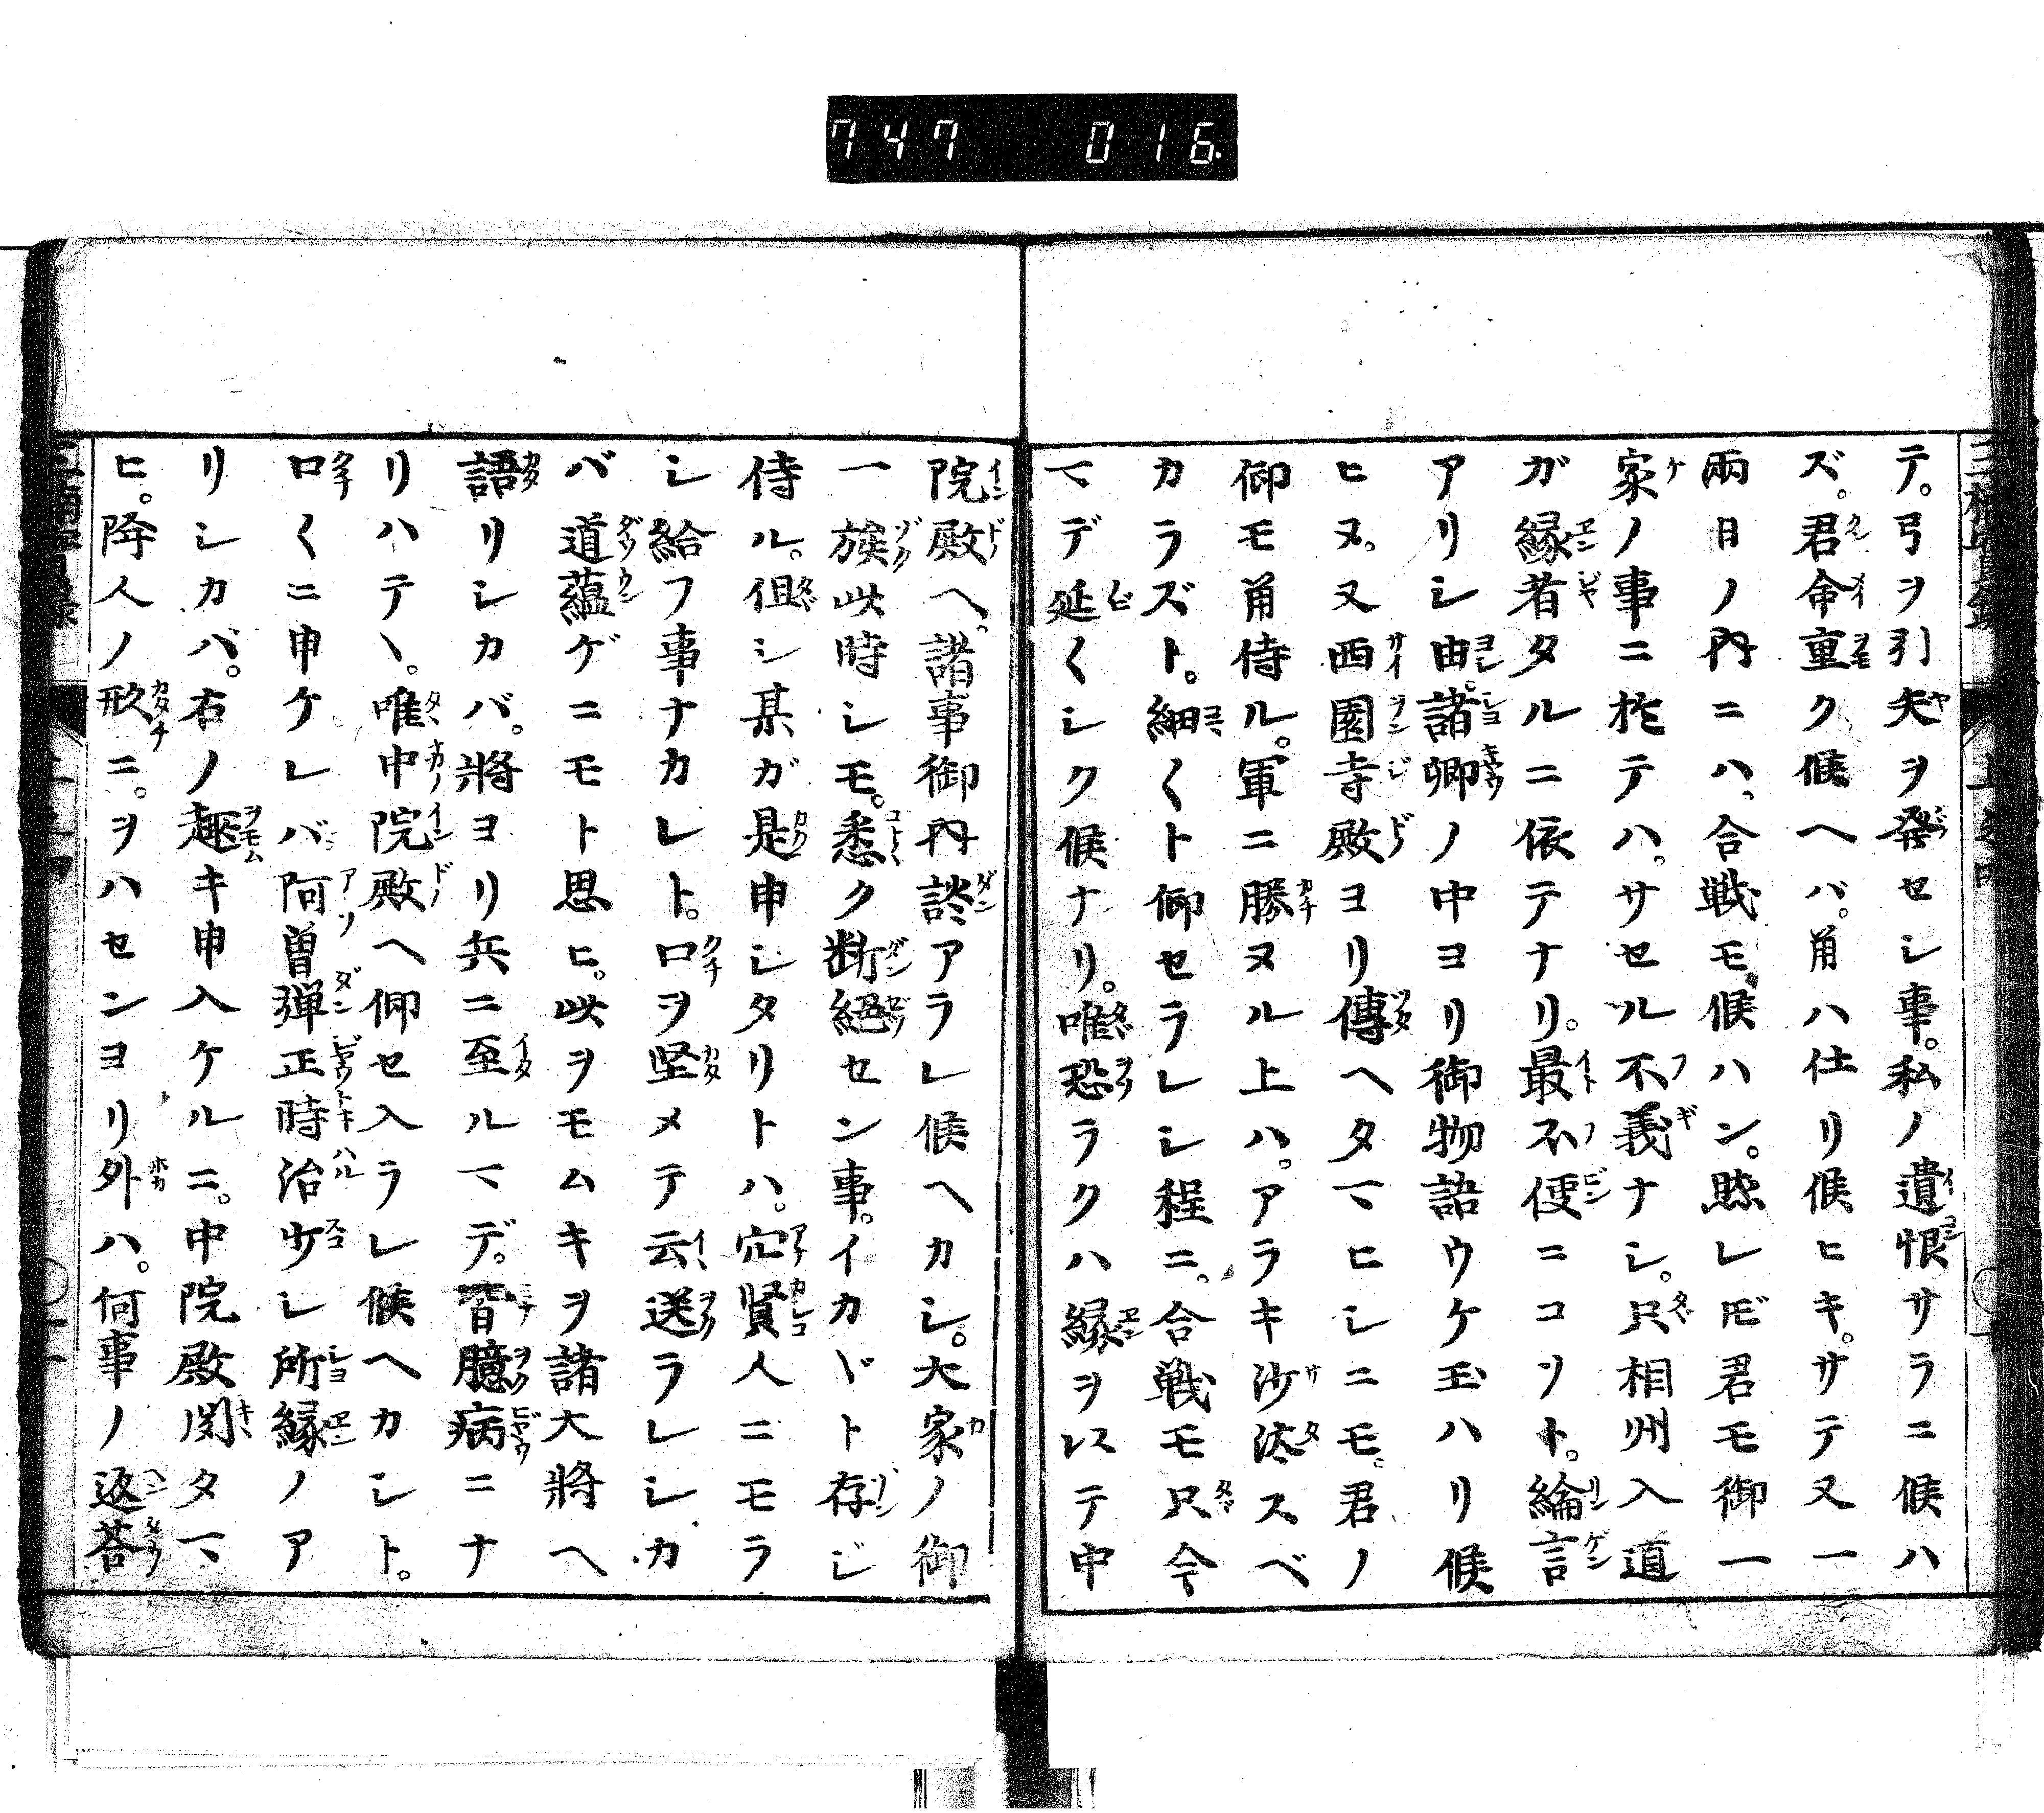 747 016.
テ。弓ヲ引矢ヲ発セシ事。私ノ遺恨サラニ候ハ
ズ。君命重ク候ヘバ。角ハ仕リ候ヒキ。サテ又一
兩日ノ内ニハ、合戦モ候ハン。然レ𪜈君モ御一
家ノ事ニ於テハ。サセル不義ナシ。只相州入道
ガ縁者タルニ依テナリ。最不便ニコソト。綸言
アリシ由。諸卿ノ中ヨリ御物語ウケ玉ハリ候
ヒヌ。又西園寺殿ヨリ傳ヘタマヒシニモ。君ノ
仰モ角侍ル。軍ニ勝ヌル上ハ。アラキ沙汰スベ
カラズト。細〱ト仰セラレシ程ニ。合戦モ只今
マデ延〱シク候ナリ。唯恐ラクハ縁ヲ以テ中
院殿ヘ。諸事御内談アラレ候ヘカシ。大家ノ御
一族此時シモ。悉ク断絶セン事。イカヾト存ジ
侍ル。但シ某ガ是申シタリトハ。穴賢人ニモラ
シ給フ事ナカレト。口ヲ堅メテ云送ラレシカ
バ道蘊ゲニモト思ヒ。此ヲモムキヲ諸大將ヘ
語リシカバ。將ヨリ兵ニ至ルマデ。皆臆病ニナ
リハテヽ。唯中院殿ヘ仰セ入ラレ候ヘカシト。
口〱ニ申ケレバ阿曽弾正時治少シ所縁ノア
リシカバ。右ノ趣キ申入ケルニ。中院殿聞タマ
ヒ。降人ノ形ニ。ヲハセンヨリ外ハ。何事ノ返荅